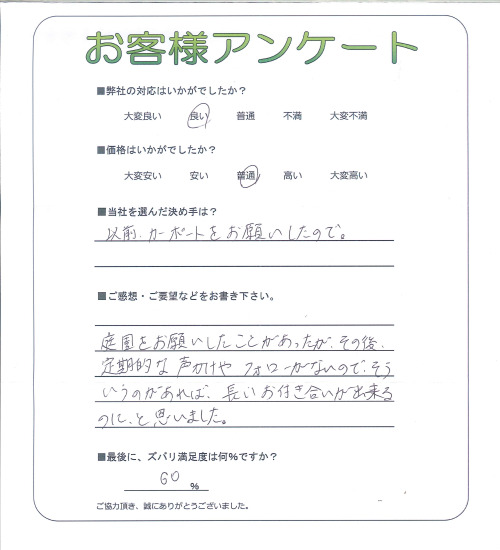 お客様アンケート
■弊社の対応はいかがでしたか？
大変良い 良い 普通 不満 大変不満
■価格はいかがでしたか？
大変安い 安い 普通 高い 大変高い
■当社を選んだ決め手は？
以前、カーポートをお願いしたので。
■ご感想・ご要望などをお書き下さい。
庭園をお願いしたことがあったが、その後、
定期的な声かけやフォローがないので、そう
いうのがあれば、長いお付き合いが出来る
のに、と思いました。
■最後に、ズバリ満足度は何％ですか？
60 ％
ご協力頂き、誠にありがとうございました。